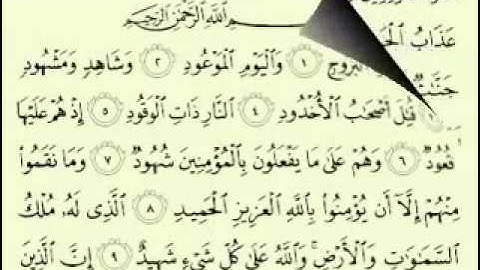 بِسْمِ اللَّهِ الرَّحْمَٰنِ الرَّحِيمِ
عَذَابُ
الْبُرُوجِ ١ وَالْيَوْمِ الْمَوْعُودِ ٢ وَشَاهِدٍ وَمَشْهُودٍ
قُتِلَ أَصْحَابُ الْأُخْدُودِ ٤ النَّارِ ذَاتِ الْوَقُودِ ٥ إِذْ هُمْ عَلَيْهَا
قُعُودٌ ٦ وَهُمْ عَلَىٰ مَا يَفْعَلُونَ بِالْمُؤْمِنِينَ شُهُودٌ ٧ وَمَا نَقَمُوا
مِنْهُمْ إِلَّا أَن يُؤْمِنُوا بِاللَّهِ الْعَزِيزِ الْحَمِيدِ ٨ الَّذِي لَهُ مُلْكُ
السَّمَاوَاتِ وَالْأَرْضِ ۚ وَاللَّهُ عَلَىٰ كُلِّ شَيْءٍ شَهِيدٌ ٩ إِنَّ الَّذِينَ